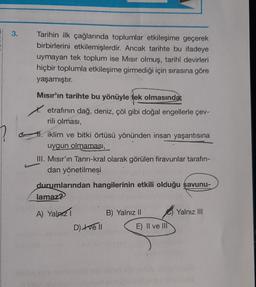 3. Tarihin ilk çağlarında toplumlar etkileşime geçerek
birbirlerini etkilemişlerdir. Ancak tarihte bu ifadeye
uymayan tek toplum ise Mısır olmuş, tarihî devirleri
hiçbir toplumla etkileşime girmediği için sırasına göre
yaşamıştır.
Mısır'ın tarihte bu yönüyle tek olmasında;
I. etrafının dağ, deniz, çöl gibi doğal engellerle çev-
rili olması,
II. iklim ve bitki örtüsü yönünden insan yaşantısına
uygun olmaması,
III. Mısır'ın Tanrı-kral olarak görülen firavunlar tarafın-
dan yönetilmesi
durumlarından hangilerinin etkili olduğu savunu-
lamaz?
A) Yalnız I B) Yalnız II C) Yalnız III
D) I ve II E) II ve III